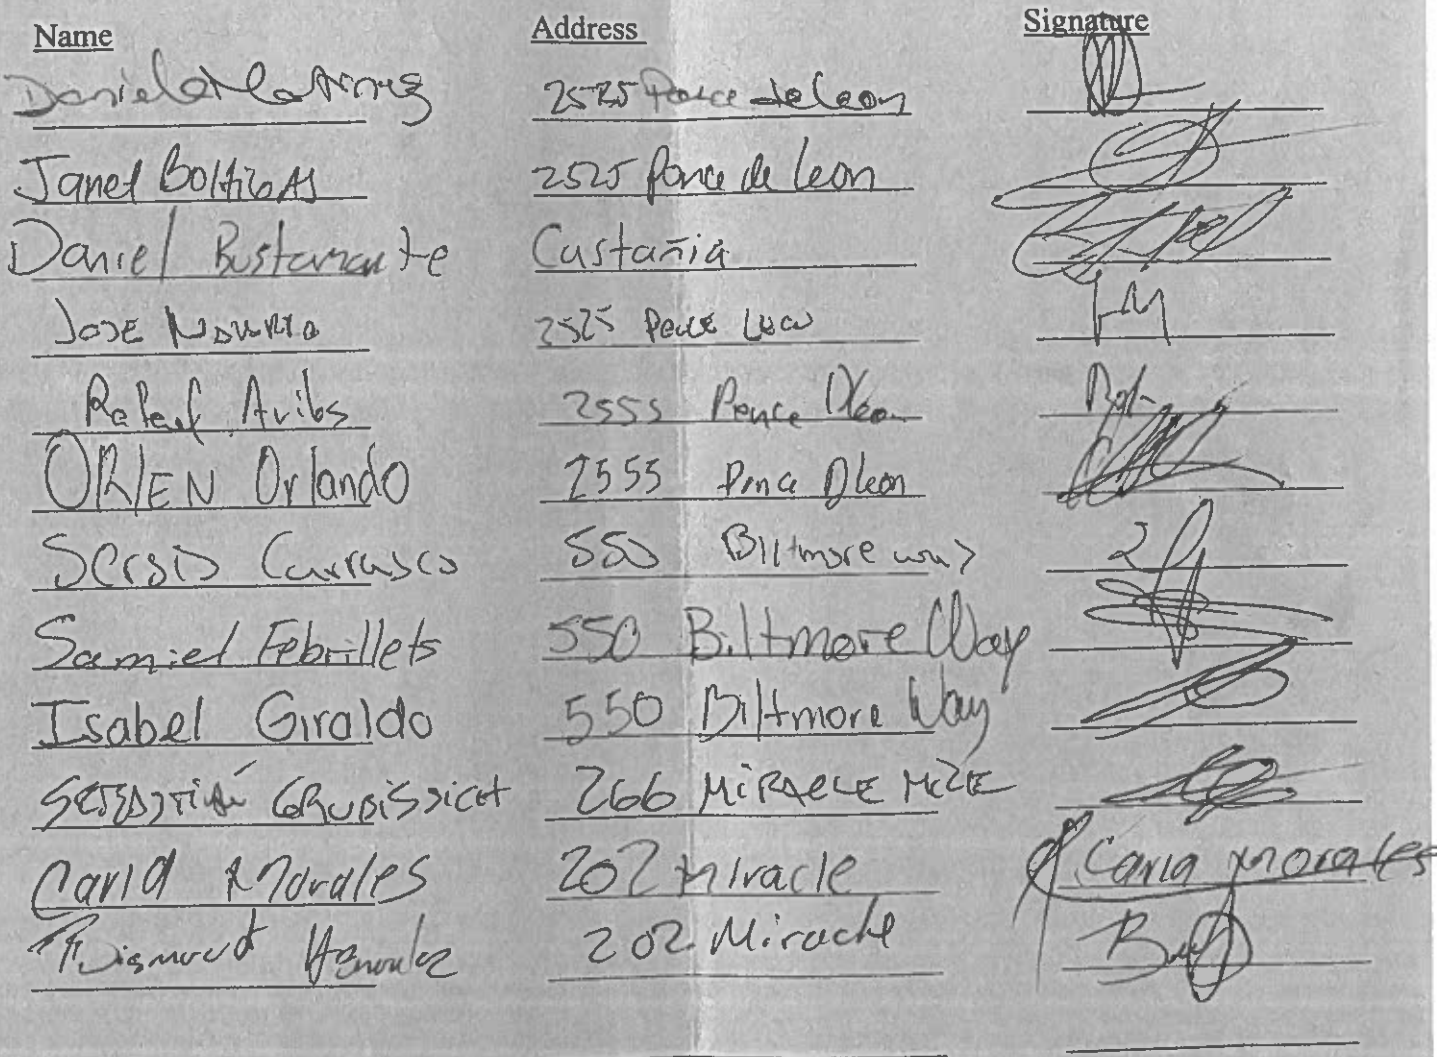 Name Address Signature
Daniela Martinez 2525 Ponce de Leon
Janet 2525 Ponce de Leon
Daniel Bustamante Castañia
Jose 2525 Ponce
Rafael Aviles 2555 Ponce Dleon
ORLEN Orlando 2555 Ponce Dleon
Sergio Carrasco 550 Biltmore way
Samiel Febrillets 550 Biltmore Way
Isabel Giraldo 550 Biltmore Way
266 MIRACLE MILE
Carla Morales 202 Miracle Carla Morales
202 Miracle